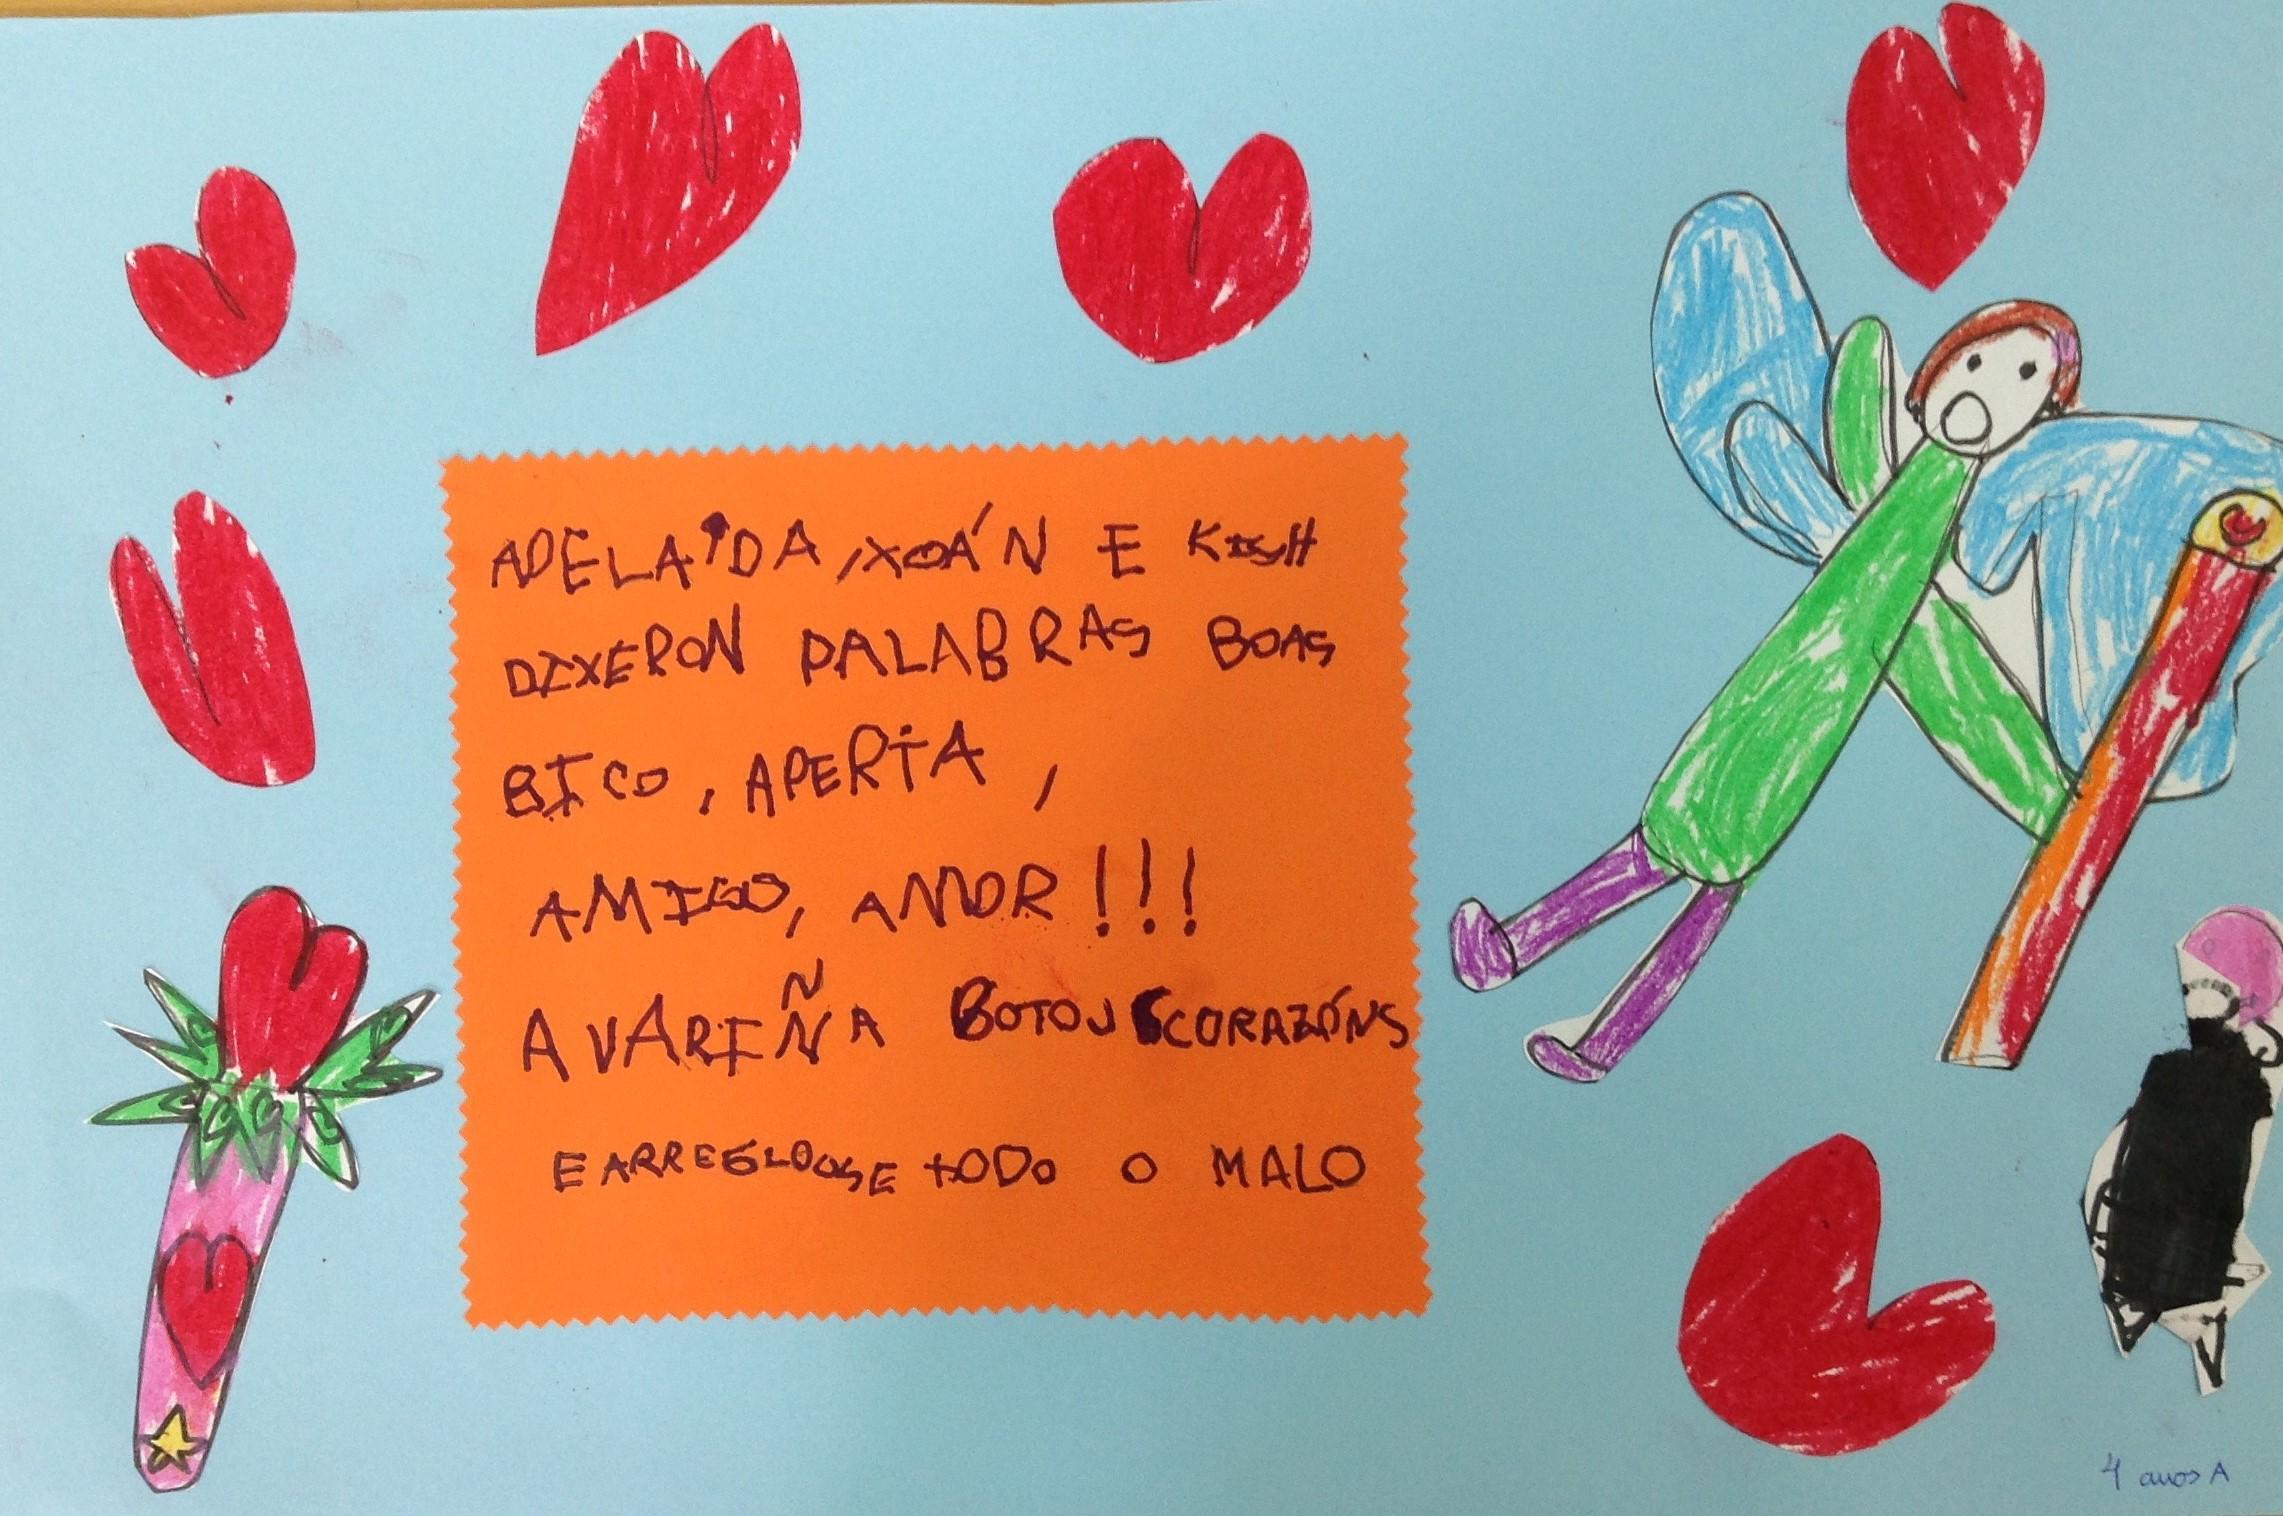 ADELAIDA, XOÁN E KISH
DIXERON PALABRAS BOAS
BICO, APERTA,
AMIGO, AMOR!!!
A VARIÑA BOTOU CORAZÓNS
E ARREGLOUSE TODO O MALO
4 anos A